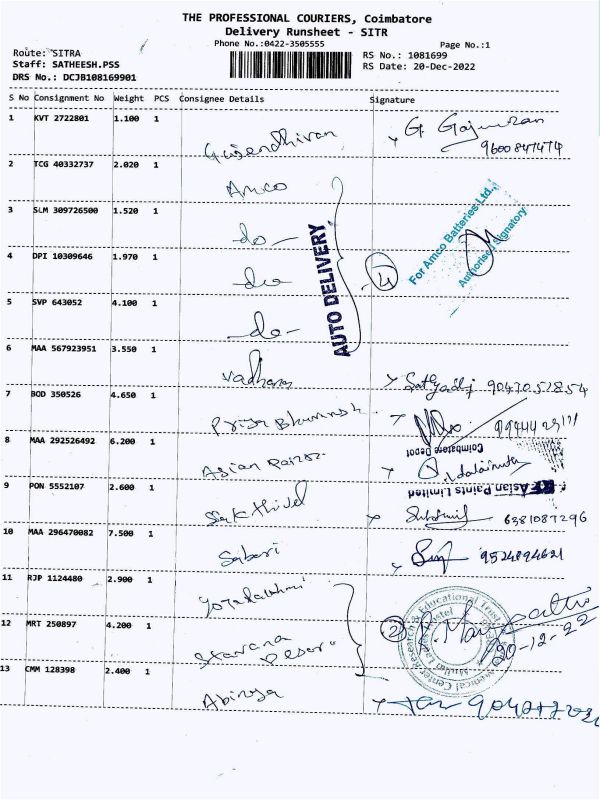 THE PROFESSIONAL COURIERS, Coimbatore
Delivery Runsheet - SITR
Phone No.:0422-3505555
Page No.:1
Route: SITRA
RS No.: 1081699
Staff: SATHEESH.PSS
RS Date: 20-Dec-2022
DRS No.: DCJB108169901
S No Consignment No Weight PCS Consignee Details Signature
1 KVT 2722801 1.100 1 G. Gajendran
9600847474
2 TCG 40332737 2.020 1 Amco
3 SLM 309726500 1.520 1 do
4 DPI 10309646 1.970 1 do
5 SVP 643052 4.100 1 do
AUTO DELIVERY
4
For Amco Batteries Ltd.,
Authorised Signatory
6 MAA 567923951 3.550 1
7 BOD 350526 4.650 1 Priya
Coimbatore Depot
8 MAA 292526492 6.200 1 Asian Paints
Asian Paints Limited
9 PON 5552107 2.600 1 Sakthivel 6381087296
10 MAA 296470082 7.500 1 Sabari 9524894621
11 RJP 1124480 2.900 1
12 MRT 250897 4.200 1 2
20-12-22
13 CMM 128398 2.400 1 Abinaya